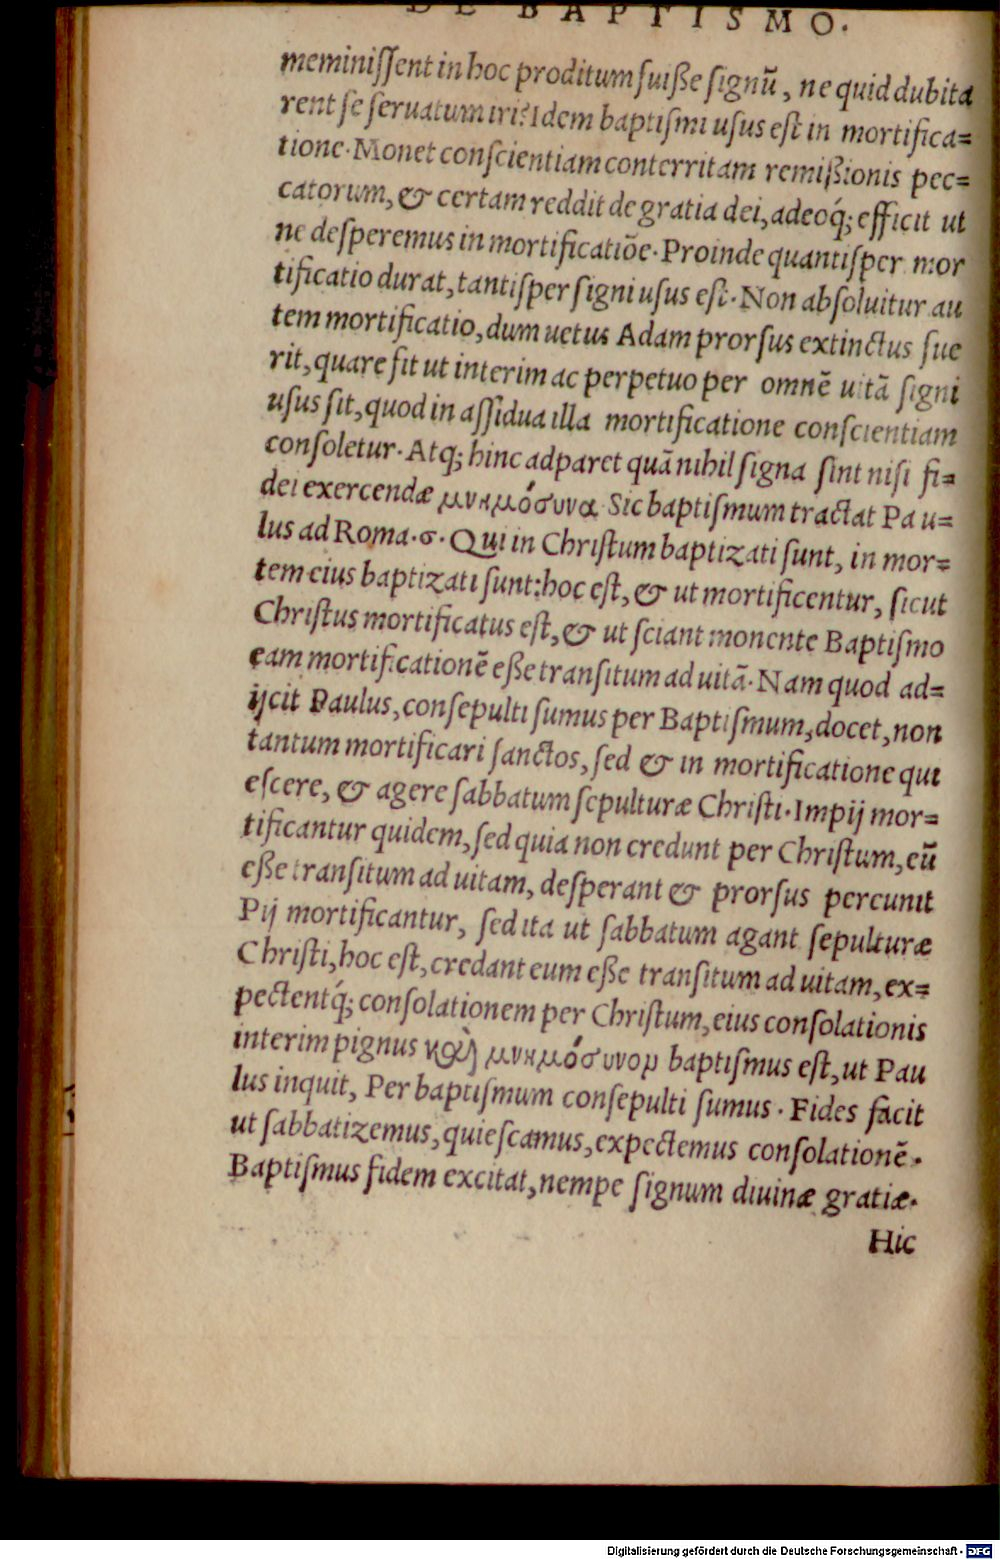 DE BAPTISMO.
meminiſſent in hoc proditum fuiße ſignũ, ne quid dubita
rent ſe ſeruatum iri? Idem baptiſmi uſus eſt in mortifica=
tione. Monet conſcientiam conterritam remißionis pec=
catorum, & certam reddit de gratia dei, adeoq́; efficit ut
ne deſperemus in mortificatiõe. Proinde quantiſper mor
tificatio durat, tantiſper ſigni uſus eſt. Non abſoluitur au
tem mortificatio, dum uetus Adam prorſus extinctus fue
rit, quare fit ut interim ac perpetuo per omnẽ uitã ſigni
uſus ſit, quod in aſſidua illa mortificatione conſcientiam
conſoletur. Atq; hinc adparet quã nihil ſigna ſint niſi fi=
dei exercendæ μνημόσυνα. Sic baptiſmum tractat Pau=
lus ad Roma. 6. Qui in Chriſtum baptizati ſunt, in mor=
tem eius baptizati ſunt: hoc eſt, & ut mortificentur, ſicut
Chriſtus mortificatus eſt, & ut ſciant monente Baptiſmo
eam mortificationẽ eße tranſitum ad uitã. Nam quod ad=
ijcit Paulus, conſepulti ſumus per Baptiſmum, docet, non
tantum mortificari ſanctos, ſed & in mortificatione qui
eſcere, & agere ſabbatum ſepulturæ Chriſti. Impij mor=
tificantur quidem, ſed quia non credunt per Chriſtum, eũ
eße tranſitum ad uitam, deſperant & prorſus pereunt
Pij mortificantur, ſed ita ut ſabbatum agant ſepulturæ
Chriſti, hoc eſt, credant eum eße tranſitum ad uitam, ex=
pectentq́; conſolationem per Chriſtum, eius conſolationis
interim pignus καὶ μνημόσυνον baptiſmus eſt, ut Pau
lus inquit, Per baptiſmum conſepulti ſumus. Fides facit
ut ſabbatizemus, quieſcamus, expectemus conſolationẽ.
Baptiſmus fidem excitat, nempe ſignum diuinæ gratiæ.
Hic
Digitalisierung gefördert durch die Deutsche Forschungsgemeinschaft - DFG